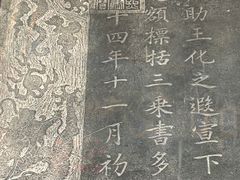 助王化之遐宣下
額標括三乘書多
十四年十一月初